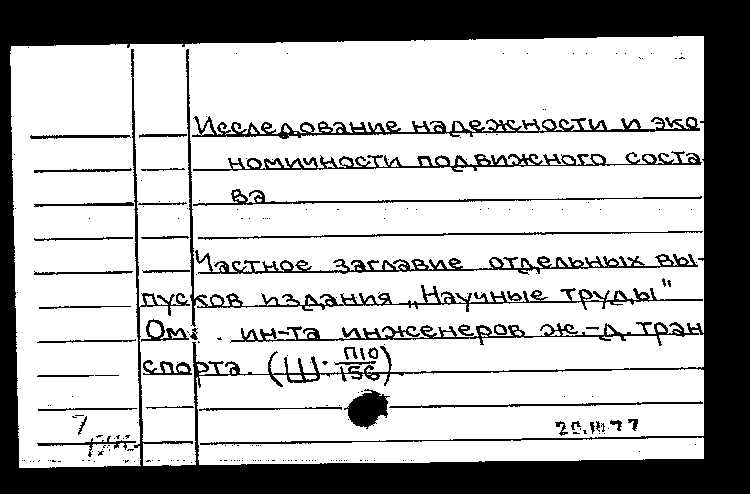 Исследование надежности и эко-
номичности подвижного соста
ва.
Частное заглавие отдельных вы-
пусков издания „Научные труды"
Ом. ин-та инженеров ж.-д. тран
спорта. (Ш. П10/156).
7